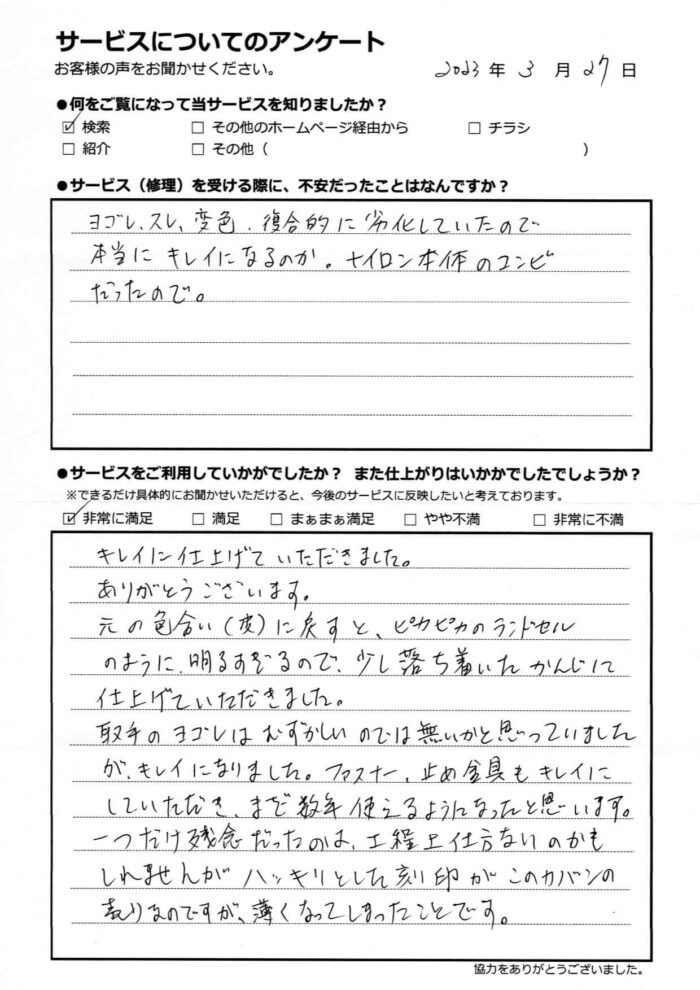 サービスについてのアンケート
お客様の声をお聞かせください。
2023年3月27日
●何をご覧になって当サービスを知りましたか？
☑ 検索 □ その他のホームページ経由から □ チラシ
□ 紹介 □ その他（ ）
●サービス（修理）を受ける際に、不安だったことはなんですか？
ヨゴレ、スレ、変色、復合的に劣化していたので
本当にキレイになるのか。ナイロン本体のコンビ
だったので。
●サービスをご利用していかがでしたか？ また仕上がりはいかかでしたでしょうか？
※できるだけ具体的にお聞かせいただけると、今後のサービスに反映したいと考えております。
☑ 非常に満足 □ 満足 □ まぁまぁ満足 □ やや不満 □ 非常に不満
キレイに仕上げていただきました。
ありがとうございます。
元の色合い（皮）に戻すと、ピカピカのランドセル
のように、明るすぎるので、少し落ち着いたかんじに
仕上げていただきました。
取手のヨゴレはむずかしいのでは無いかと思っていました
が、キレイになりました。ファスナー、止め金具もキレイに
していただき、まだ数年使えるようになったと思います。
一つだけ残念だったのは、工程上仕方ないのかも
しれませんがハッキリとした刻印がこのカバンの
売りなのですが、薄くなってしまったことです。
協力をありがとうございました。